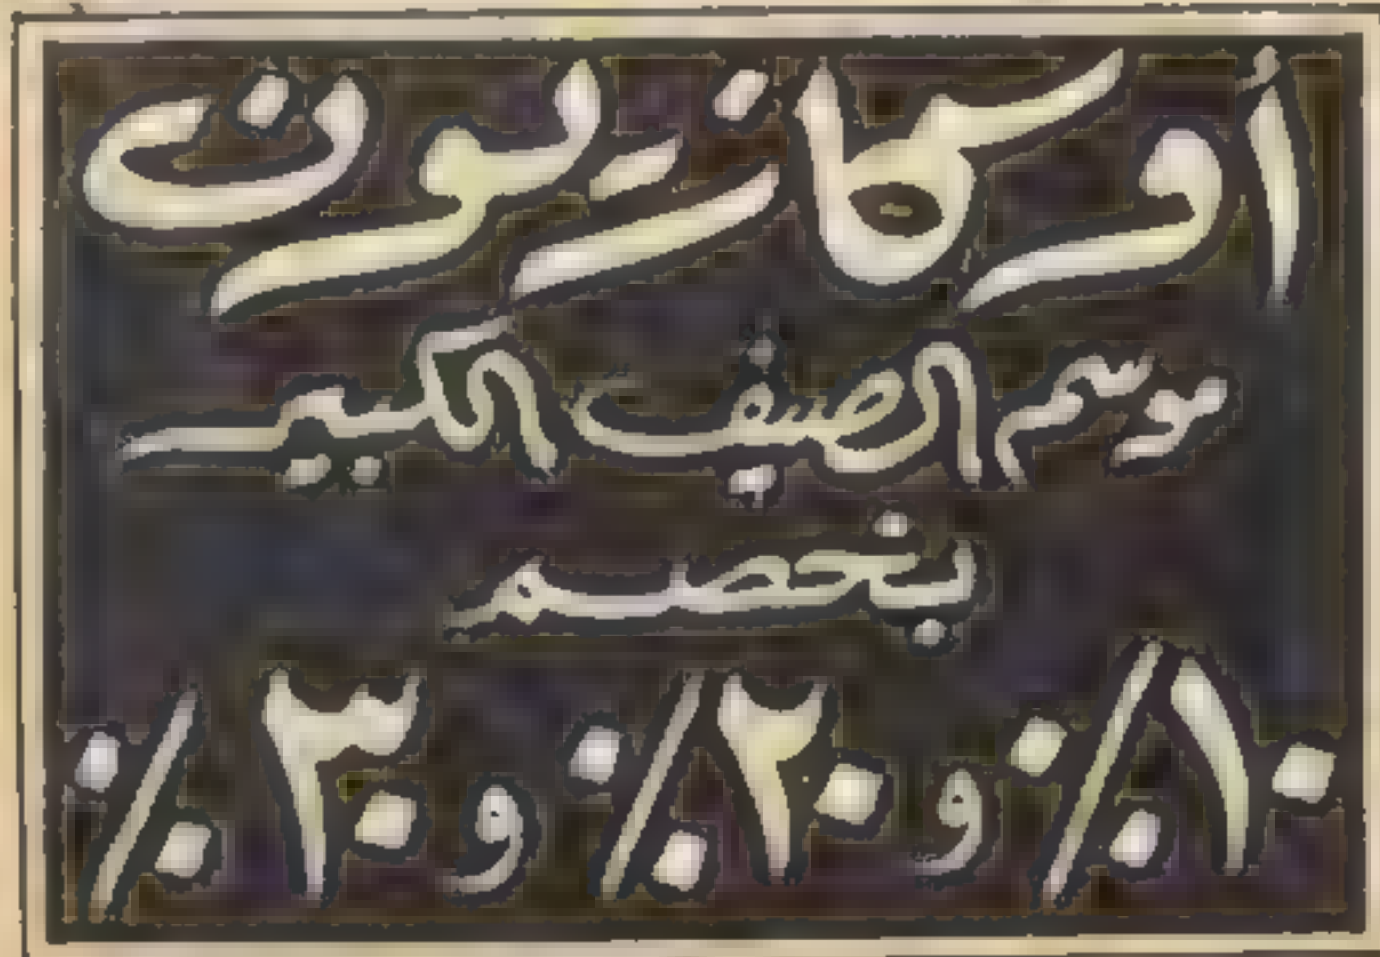 اوكازيون
موسم الصيف الكبير
بخصم
١٠٪ و ٢٠٪ و ٣٠٪